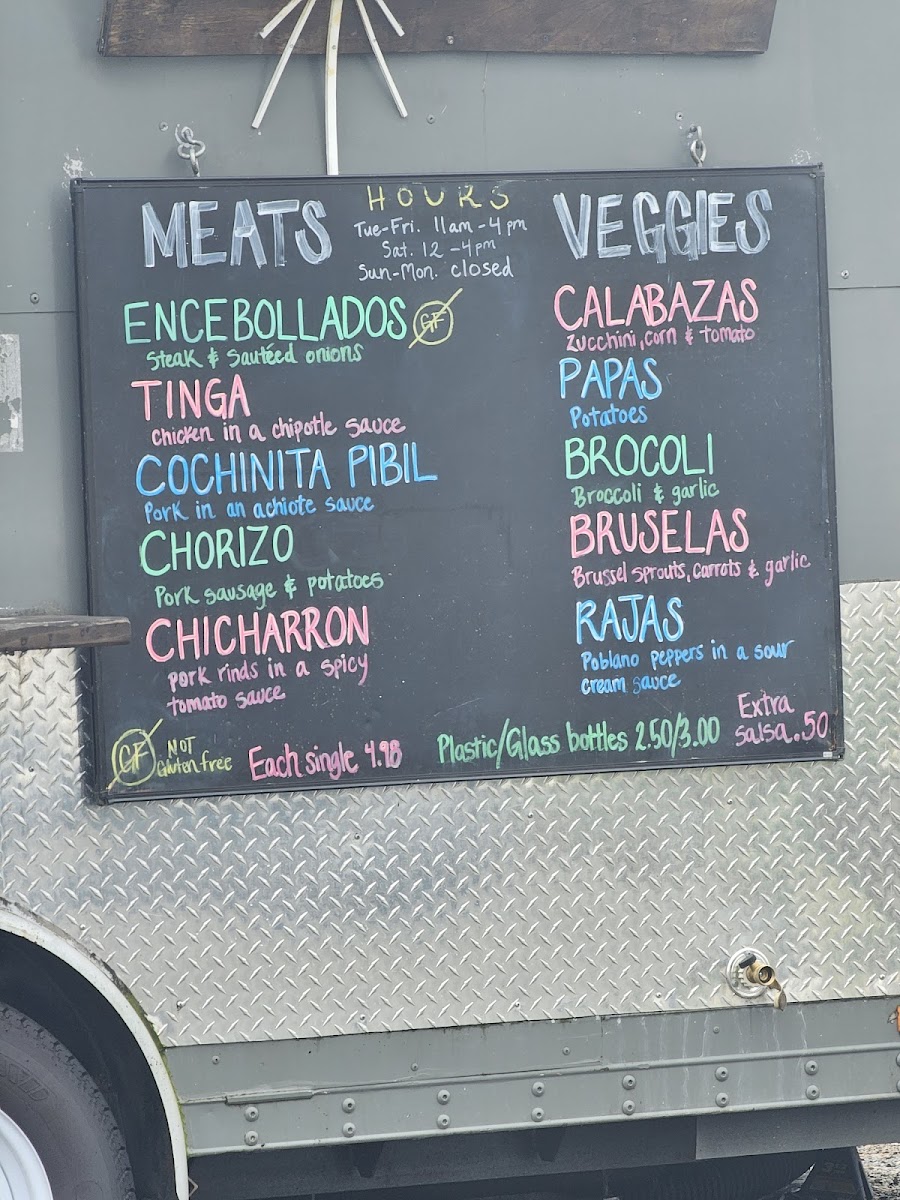 HOURS
Tue-Fri. 11am-4pm
Sat. 12-4pm
Sun-Mon. closed
MEATS
ENCEBOLLADOS GF
Steak & Sautéed onions
TINGA
Chicken in a chipotle sauce
COCHINITA PIBIL
Pork in an achiote sauce
CHORIZO
Pork sausage & potatoes
CHICHARRON
pork rinds in a spicy
tomato sauce
VEGGIES
CALABAZAS
Zucchini, corn & tomato
PAPAS
Potatoes
BROCOLI
Broccoli & garlic
BRUSELAS
Brussel sprouts, carrots & garlic
RAJAS
Poblano peppers in a sour
cream sauce
GF NOT
Gluten free
Each single 4.98
Plastic/Glass bottles 2.50/3.00
Extra
salsa .50